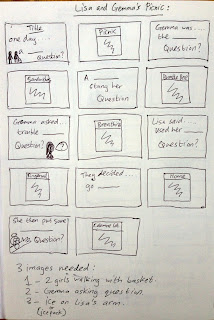 Lisa and Gemma's Picnic:
Title
one day...
a
Question?
Picnic
Gemma was..
the
Question?
Sandwiches
A
stung her
Question
Bumble Bee
Gemma asked..
trouble
Question?
?
Breathing
Lisa said...
used her
Question?
They decided...
go
Home
She then put some
Question?
3 images needed:
1 - 2 girls walking with basket.
2 - Gemma asking question.
3 - Ice on Lisa's arm.
(ice pack)